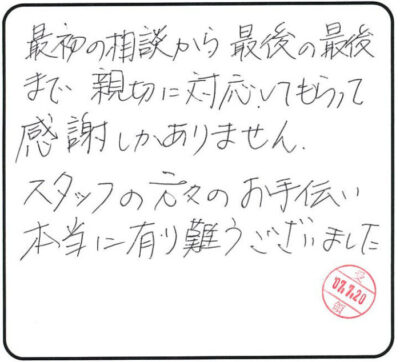 最初の相談から最後の最後
まで親切に対応してもらって
感謝しかありません.
スタッフの方々のお手伝い
本当に有り難うございました
受
07.7.20